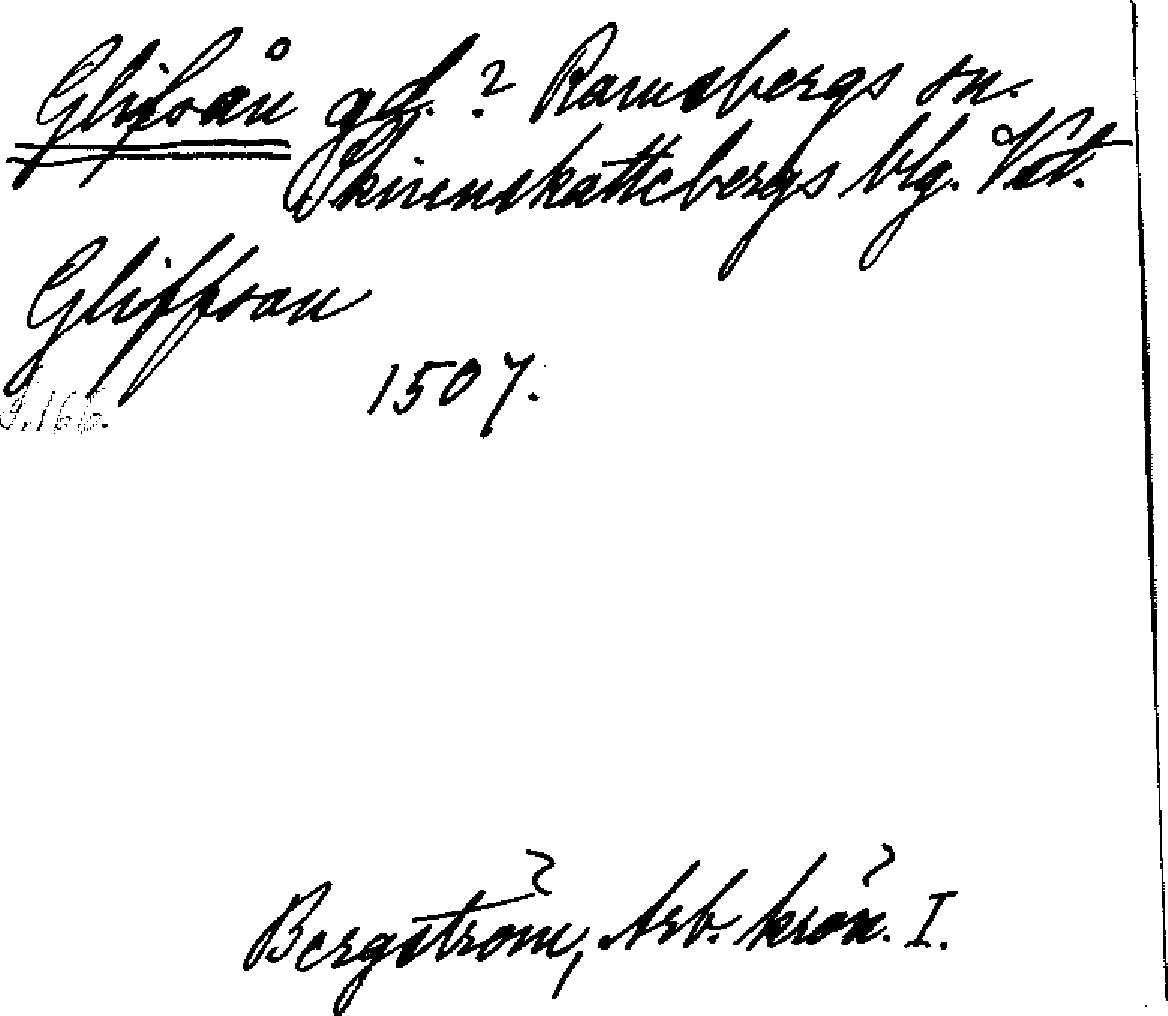 Glifsån gd.? Ramsbergs sn.
Skinnskattebergs blg. Vstm.
Gliffsan
1507.
S. 166.
Bergström, Arb. krön. I.